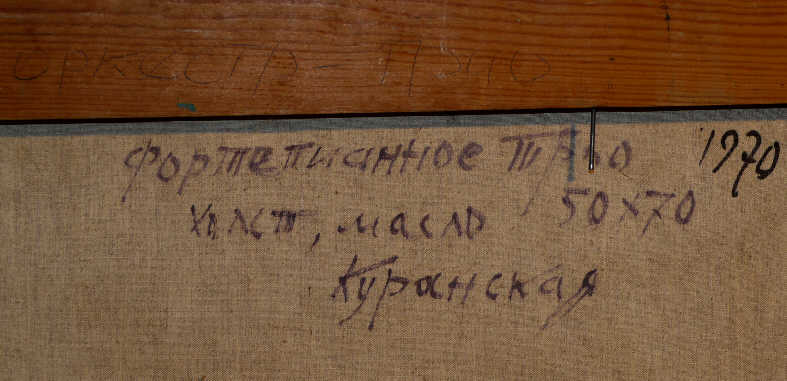 оркестр - трио
фортепианное трио 1970
холст, масло 50х70
Куранская